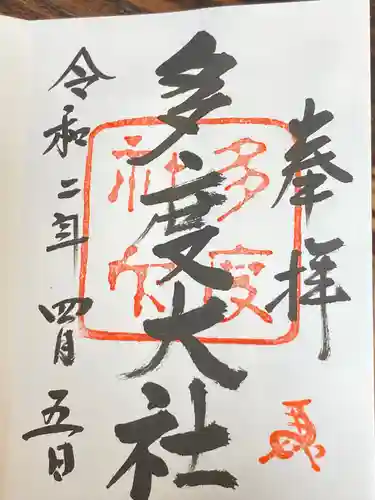 奉拝
多度大社
多度
大社
令和二年四月五日